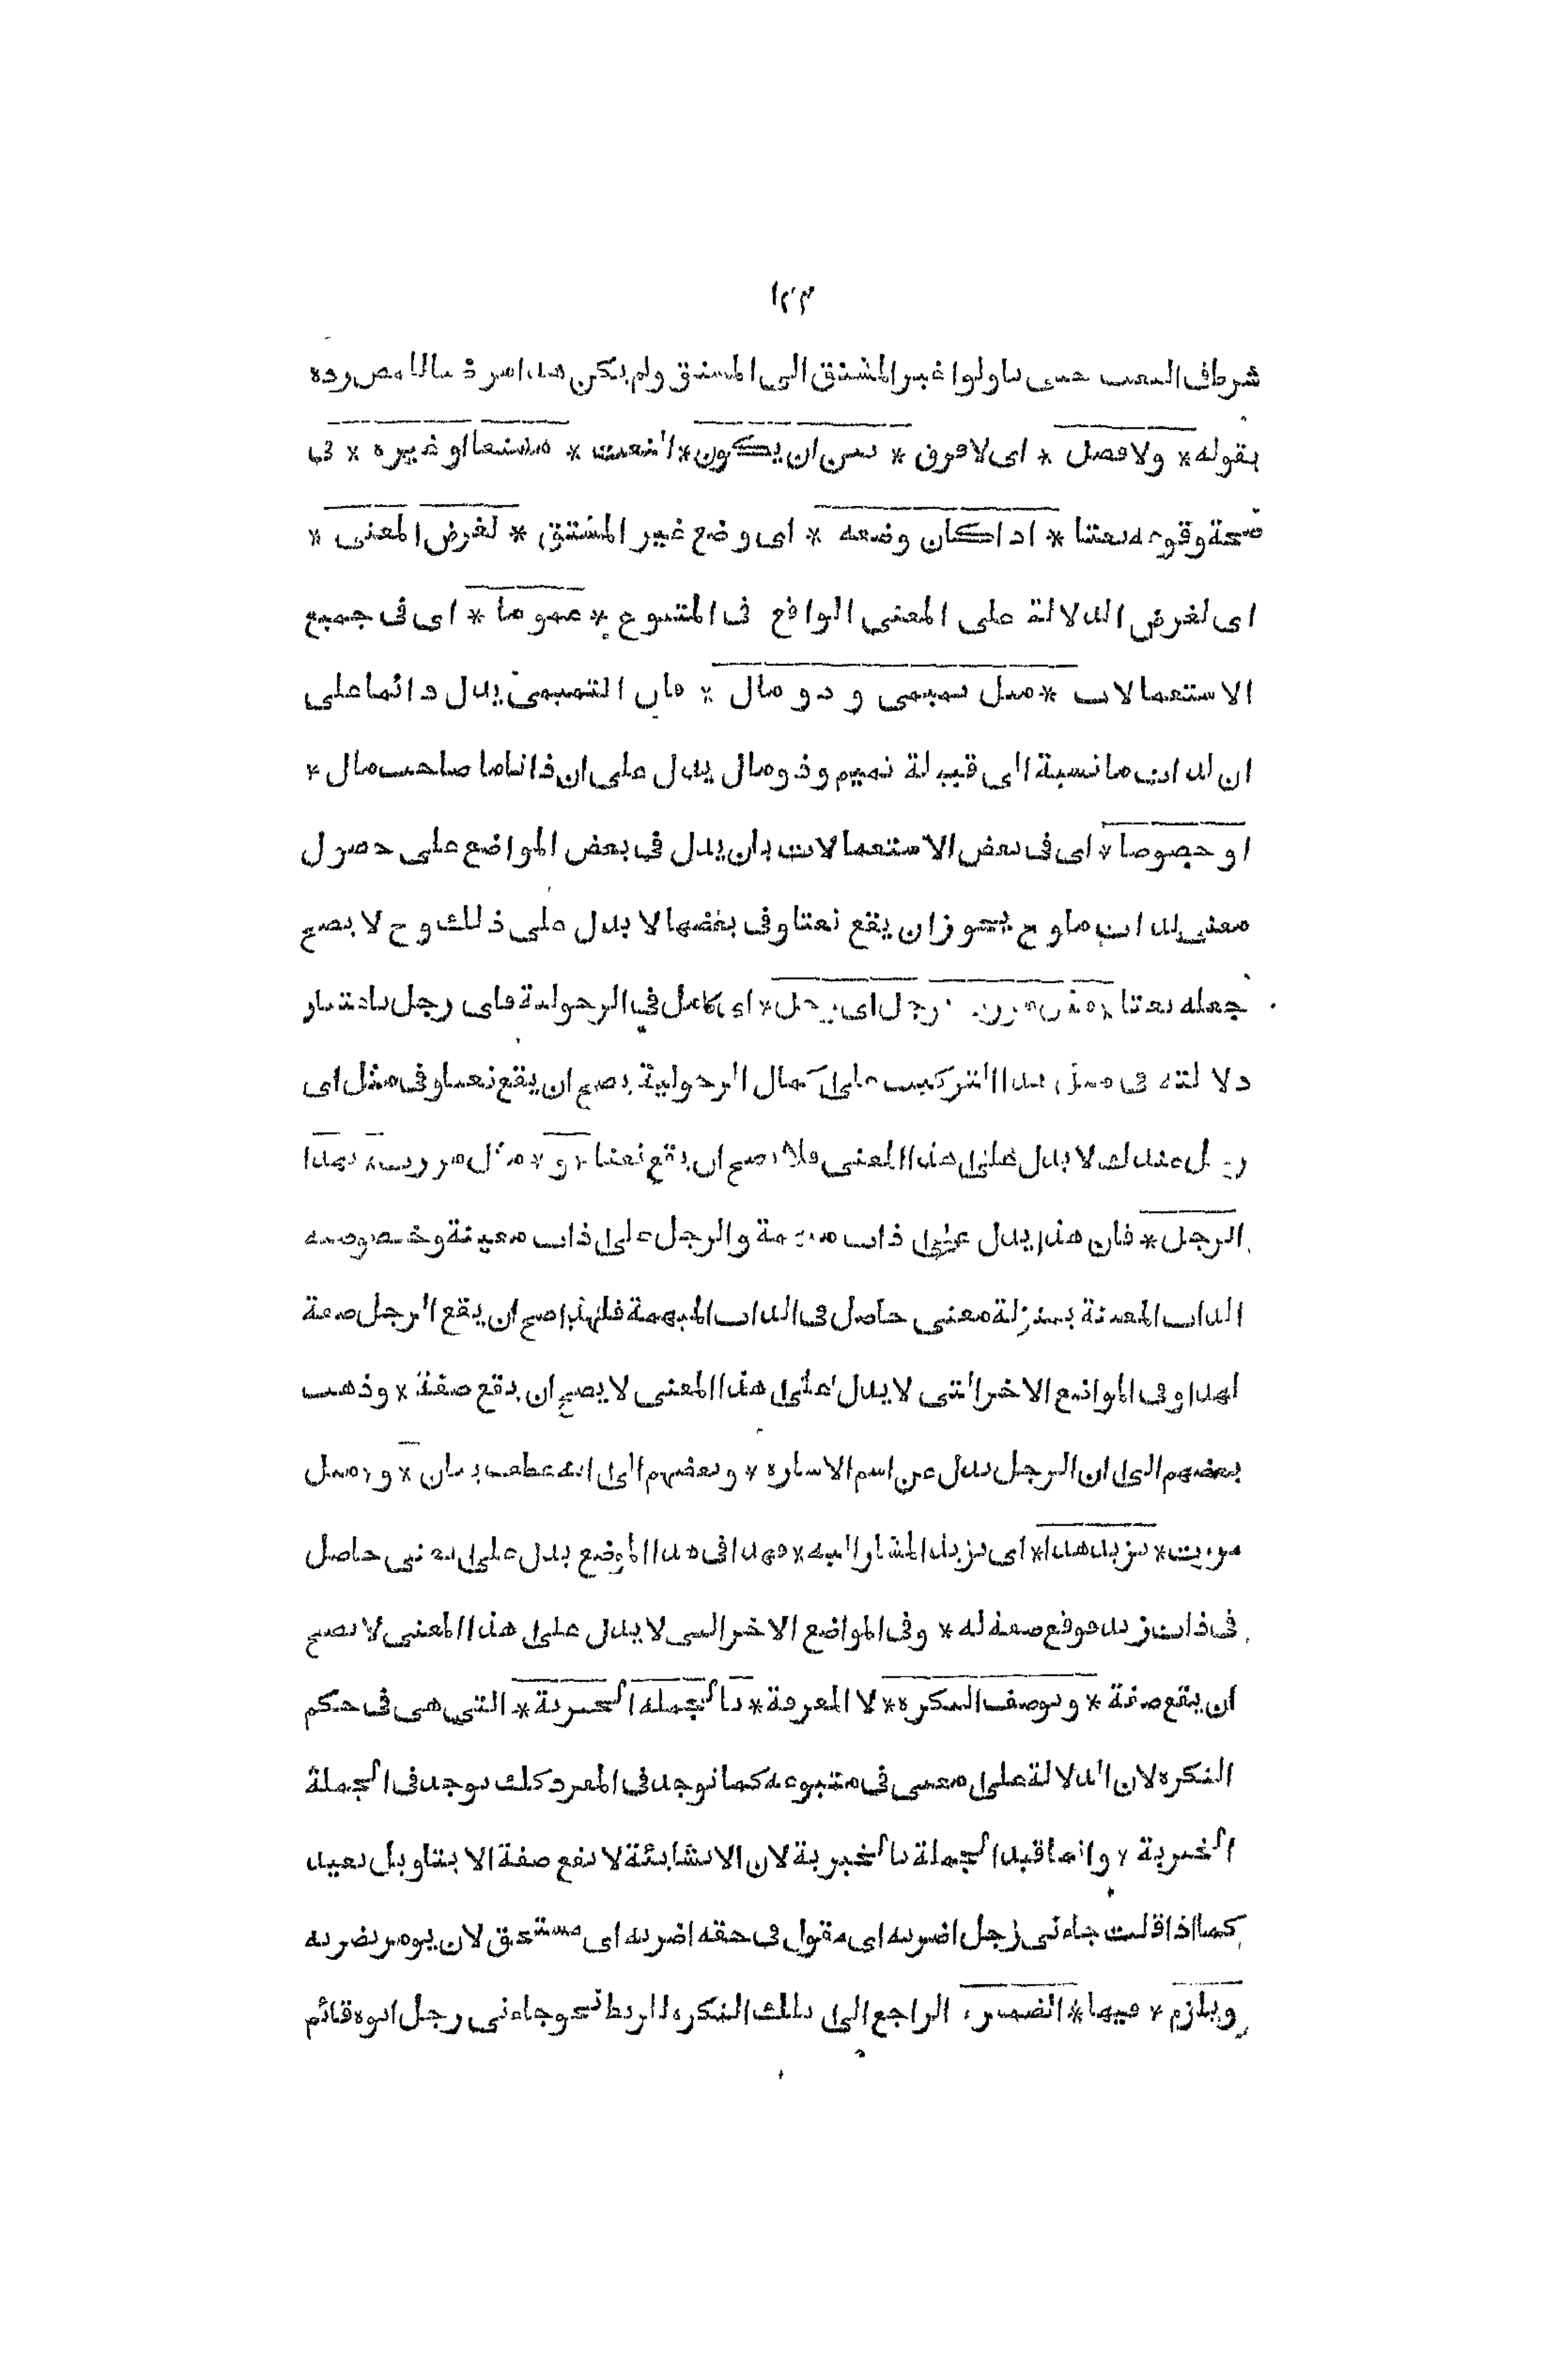 ١٢٣
شرط فى النعت حتى تاولوا غير المشتق الى المشتق ولم يكن هذا مرضيا للمص رده
بقوله * ولا فصل * اى لا فرق * بين ان يكون * النعت * مشتقا او غيره * فى
صحة وقوعه نعتا * اذا كان وضعه * اى وضع غير المشتق * لغرض المعنى *
اى لغرض الدلالة على المعنى الواقع فى المتبوع * عموما * اى فى جميع
الاستعمالات * مثل تميمى و ذو مال * فان التميمى يدل دائما على
ان لذات ما نسبة الى قبيلة تميم وذو مال يدل على ان ذاتا ما صاحب مال *
او خصوصا * اى فى بعض الاستعمالات بان يدل فى بعض المواضع على حصول
معنى لذات ما و ح يجوز ان يقع نعتا وفى بعضها لا يدل على ذلك و ح لا يصح
جعله نعتا * مثل مررت برجل اى رجل * اى كامل فى الرجولية فاى رجل باعتبار
دلالته فى مثل هذا التركيب على كمال الرجولية يصح ان يقع نعتا وفى مثل اى
رجل عندك لا يدل على هذا المعنى فلا يصح ان يقع نعتا * و * مثل مررت * بهذا
الرجل * فان هذا يدل على ذات مبهمة والرجل على ذات معينة وخصوصية
الذات المعينة بمنزلة معنى حاصل فى الذات المبهمة فلهذا صح ان يقع الرجل صفة
لهذا وفى المواضع الاخر التى لا يدل على هذا المعنى لا يصح ان يقع صفة * وذهب
بعضهم الى ان الرجل بدل عن اسم الاشارة * وبعضهم الى انه عطف بيان * و * مثل
مررت * بزيد هذا * اى بزيد المشار اليه * فهذا فى هذا الموضع يدل على معنى حاصل
فى ذات زيد فوقع صفة له * وفى المواضع الاخر التى لا يدل على هذا المعنى لا يصح
ان يقع صفة * وتوصف النكرة * لا المعرفة * بالجملة الخبرية * التى هى فى حكم
النكرة لان الدلالة على معنى فى متبوعه كما توجد فى المفرد كذلك توجد فى الجملة
الخبرية * وانما قيد الجملة بالخبرية لان الانشائية لا تقع صفة الا بتاويل بعيد
كما اذا قلت جاءنى رجل اضربه اى مقول فى حقه اضربه اى مستحق لان يومر بضربه
ويلزم * فيها * الضمير * الراجع الى تلك النكرة للربط نحو جاءنى رجل ابوه قائم